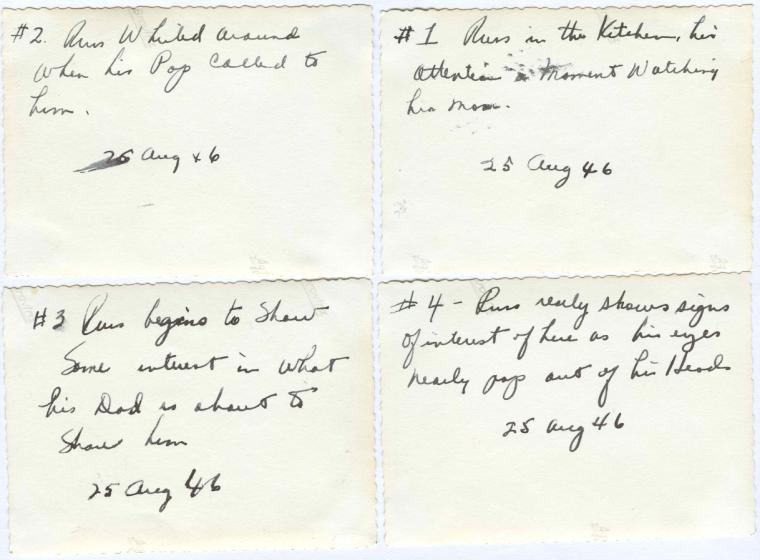 #2. Russ Whirled around
when his Pop called to
him.
25 Aug 46
#1 Russ in the Kitchen, his
attention a moment Watching
his mom.
25 Aug 46
#3 Russ begins to Show
Some interest in what
his Dad is about to
Show him
25 Aug 46
#4 - Russ really shows signs
of interest of here as his eyes
nearly pop out of his Heads
25 Aug 46